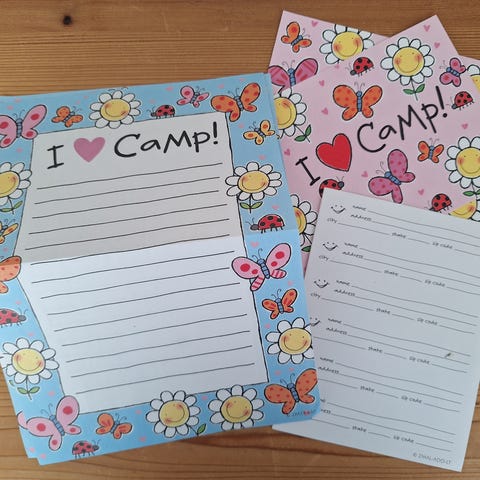 I Camp!
I Camp!
name
address
city state zip code
name
address
city state zip code
name
address
city state zip code
name
address
state zip code
name
address
state zip code